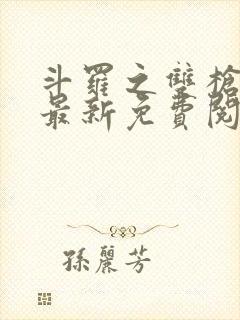 斗羅之雙槍
最新免費閱
孫麗芳